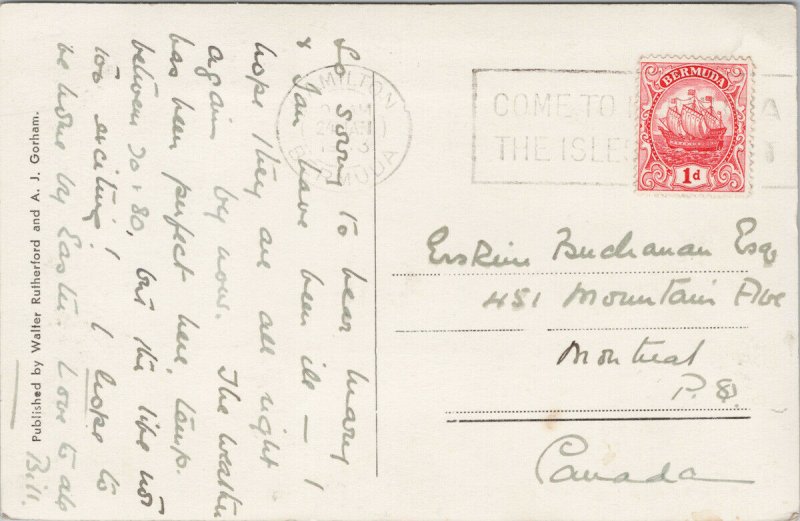 So sorry to hear Mary
& Jan have been ill — I
hope they are all right
again by now. The weather
has been perfect here, temp.
between 70 & 80, but the life not
too exciting! I hope to
be home by Easter. Love to all
Bill.
Published by Walter Rutherford and A. J. Gorham.
HAMILTON
BERMUDA
COME TO
THE ISLES
BERMUDA
1d
Erskine Buchanan Esq
451 Mountain Ave
Montreal
P.Q.
Canada